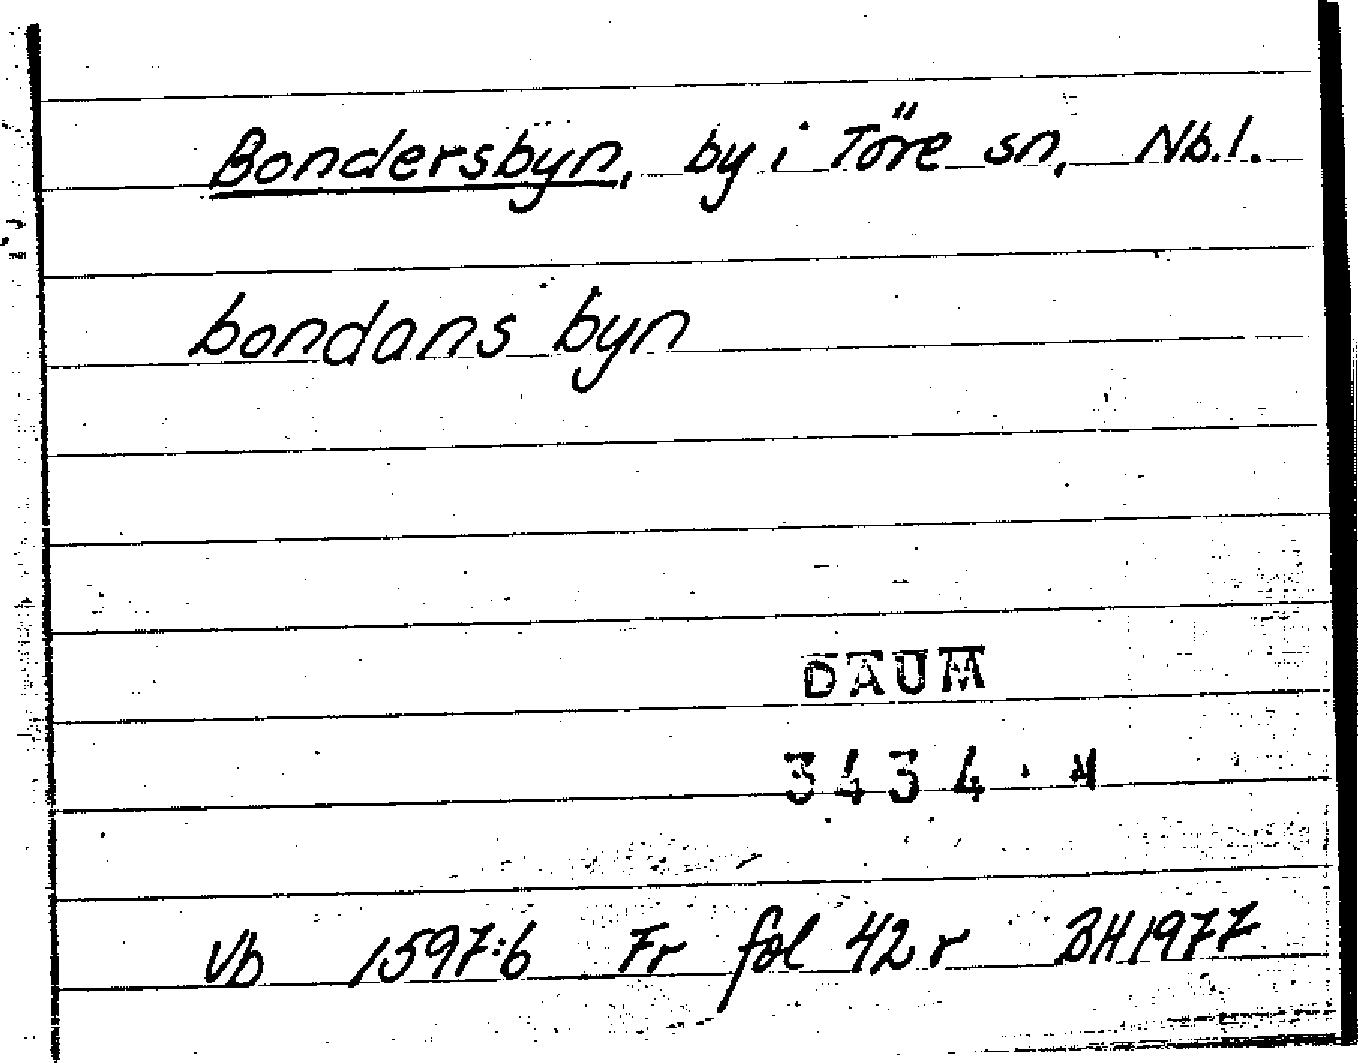 Bondersbyn, by i Töre sn, Nb.l.
bondans byn
DAUM
3434. H
Vb 1597:6 Fr fol 42 r BH1977